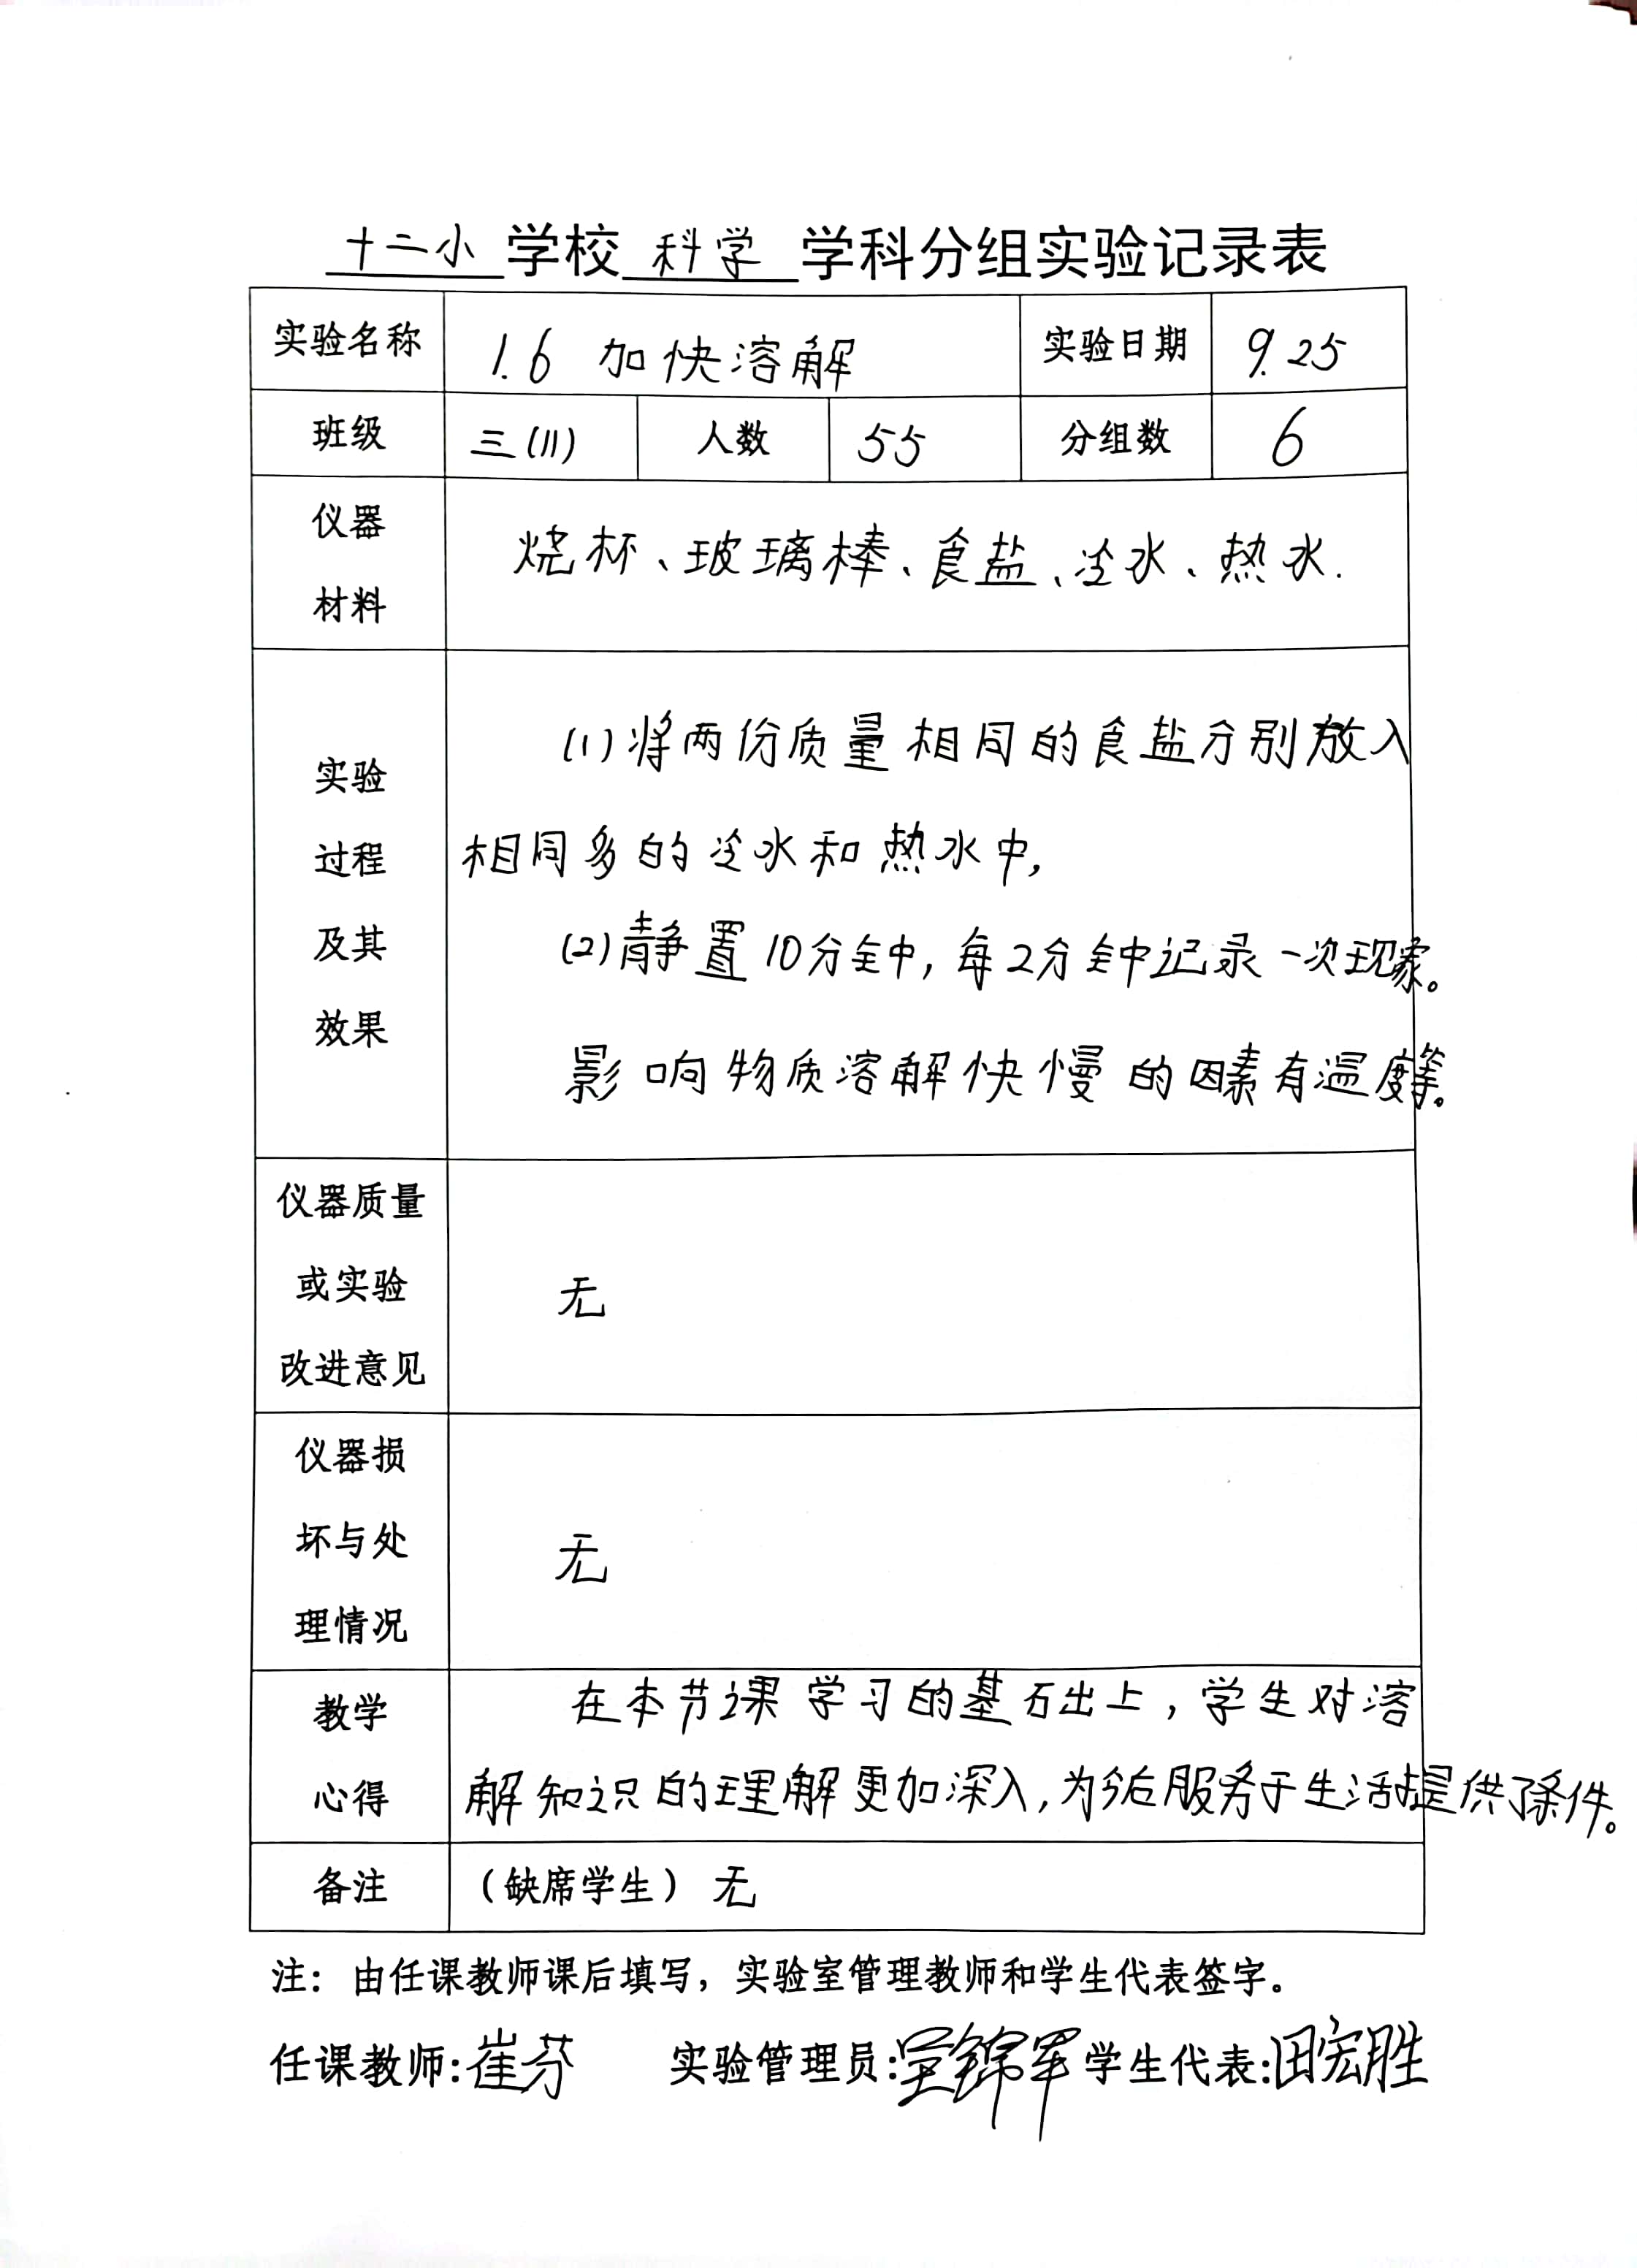 十二小学校科学学科分组实验记录表
实验名称 1.6 加快溶解 实验日期 9.25
班级 三(11) 人数 55 分组数 6
仪器
材料
烧杯、玻璃棒、食盐、冷水、热水.
实验
过程
及其
效果
(1)将两份质量相同的食盐分别放入
相同多的冷水和热水中,
(2)静置10分钟,每2分钟记录一次现象。
影响物质溶解快慢的因素有温度等。
仪器质量
或实验
改进意见
无
仪器损
坏与处
理情况
无
教学
心得
在本节课学习的基础上,学生对溶
解知识的理解更加深入,为今后服务于生活提供了条件。
备注 (缺席学生) 无
注：由任课教师课后填写，实验室管理教师和学生代表签字。
任课教师:崔芬 实验管理员: 锦军 学生代表:田宏胜